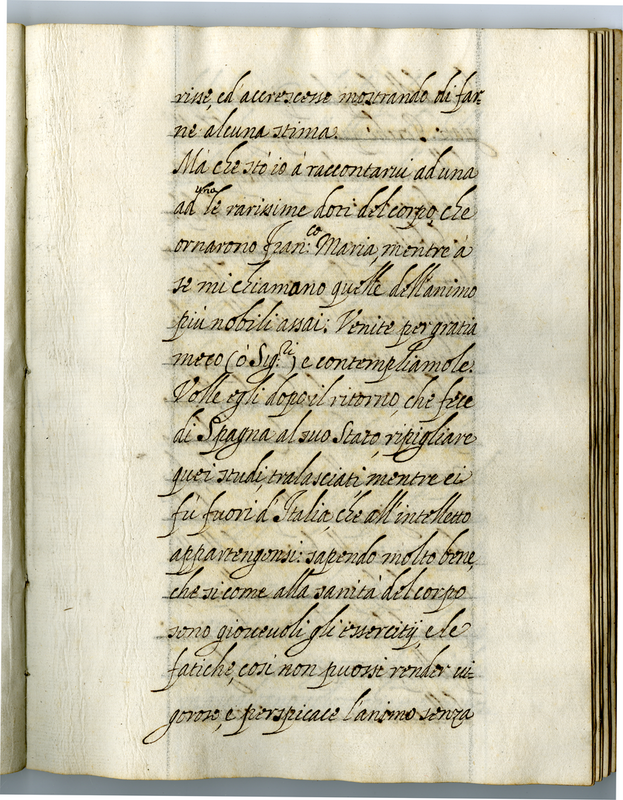 risse, ed accrescesse mostrando di far-
ne alcuna stima.
Mà che stò io à raccontarui ad una
ad una le rarissime doti del corpo, che
ornarono Fran:co Maria, mentre à
se mi chiamano quelle dell'animo
più nobili assai. Venite per gratia
meco (ò Sig.ri) e contempliamole.
Volle egli dopo il ritorno, che fece
di Spagna al suo Stato, ripigliare
quei studi tralasciati, mentre ei
fù fuori d'Italia, che all'intelletto
appartengonsi: sapendo molto bene,
che si come alla sanità del corpo
sono gioueuoli gli essercitij, e le
fatiche, così non puossi render ui-
goroso, e perspicace l'animo senza